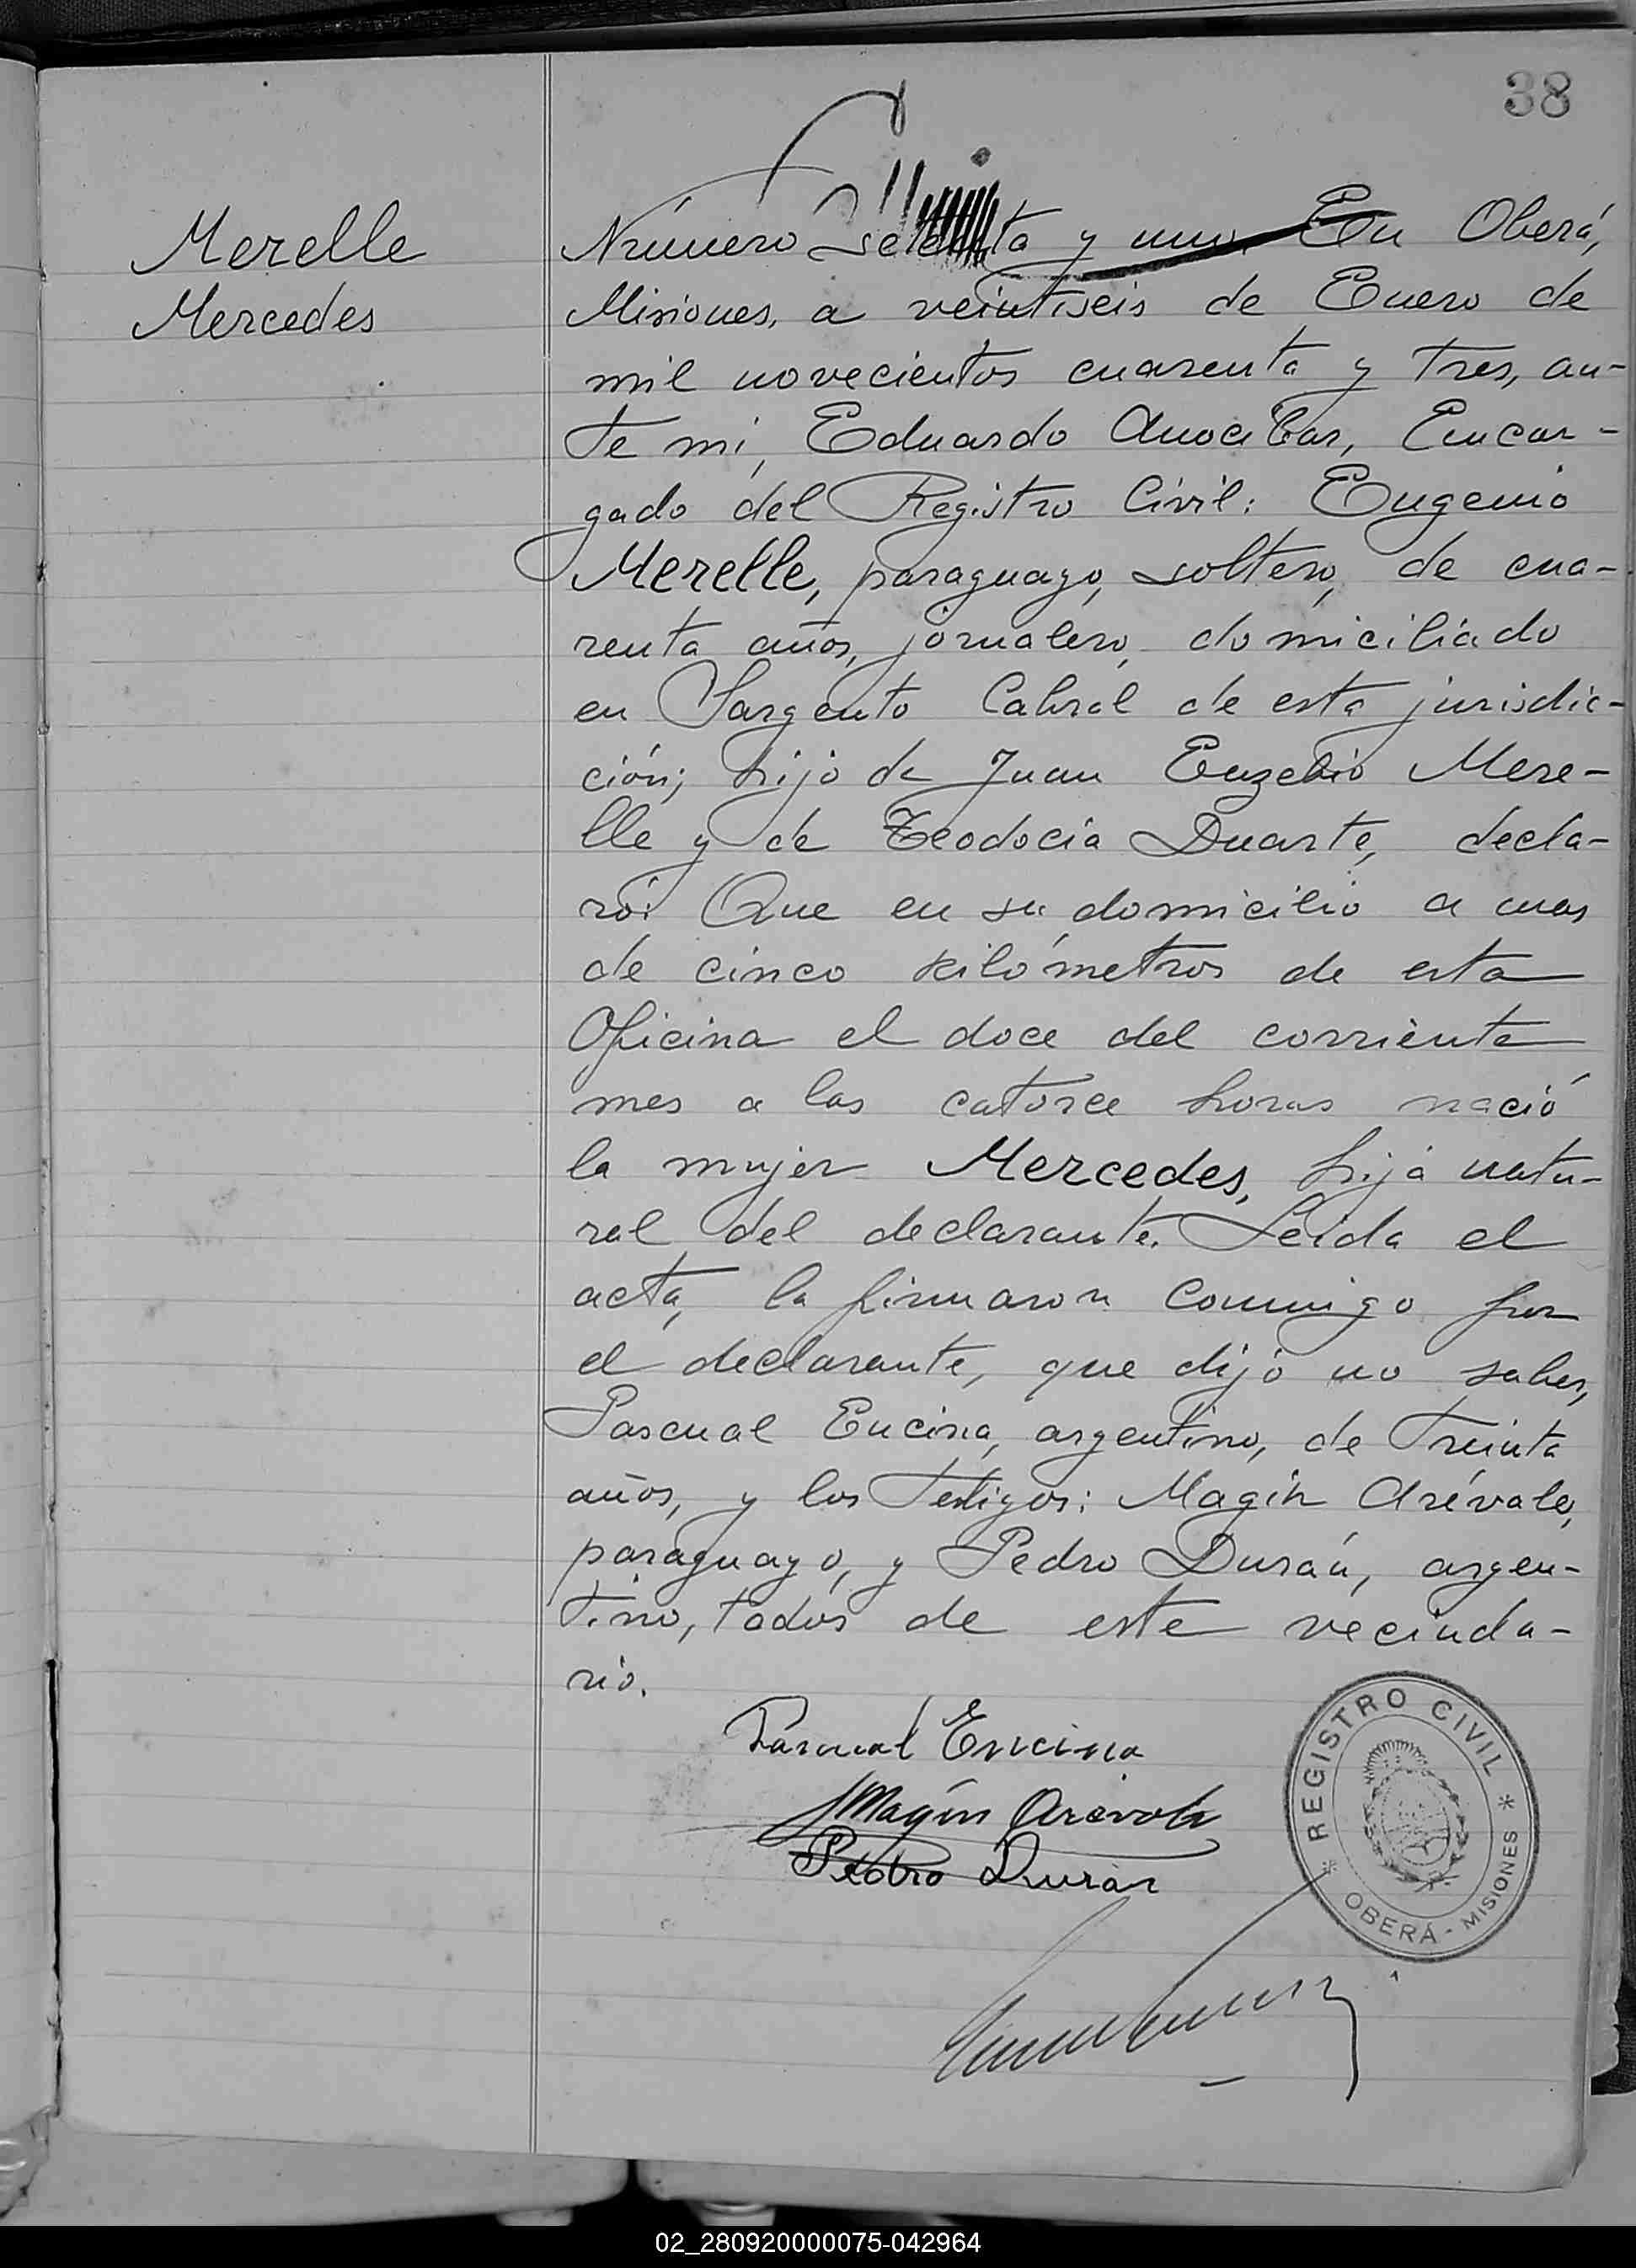 38
Merelle
Mercedes
Número y uno En Oberá,
Misiones, a veintiseis de Enero de
mil novecientos cuarenta y tres, an-
te mi, Eduardo Anocibar, Encar-
gado del Registro Civil: Eugenio
Merelle, paraguayo, soltero, de cua-
renta años, jornalero, domiciliado
en Sargento Cabral de esta jurisdic-
ción; hijo de Juan Euzebio Mere-
lle y de Teodocia Duarte, decla-
ró: Que en su domicilio a mas
de cinco kilómetros de esta
Oficina el doce del corriente
mes a las catorce horas nació
la mujer Mercedes, hija natu-
ral del declarante. Leida el
acta, la firmaron conmigo por
el declarante, que dijo no saber,
Pascual Encina, argentino, de treinta
años, y los testigos: Magin Arévalo,
paraguayo, y Pedro Durán, argen-
tino, todos de este vecinda-
rio.
Pascual Encina
Magin Arevalo
Pedro Duran
* REGISTRO CIVIL *
OBERÁ - MISIONES
02_280920000075-042964